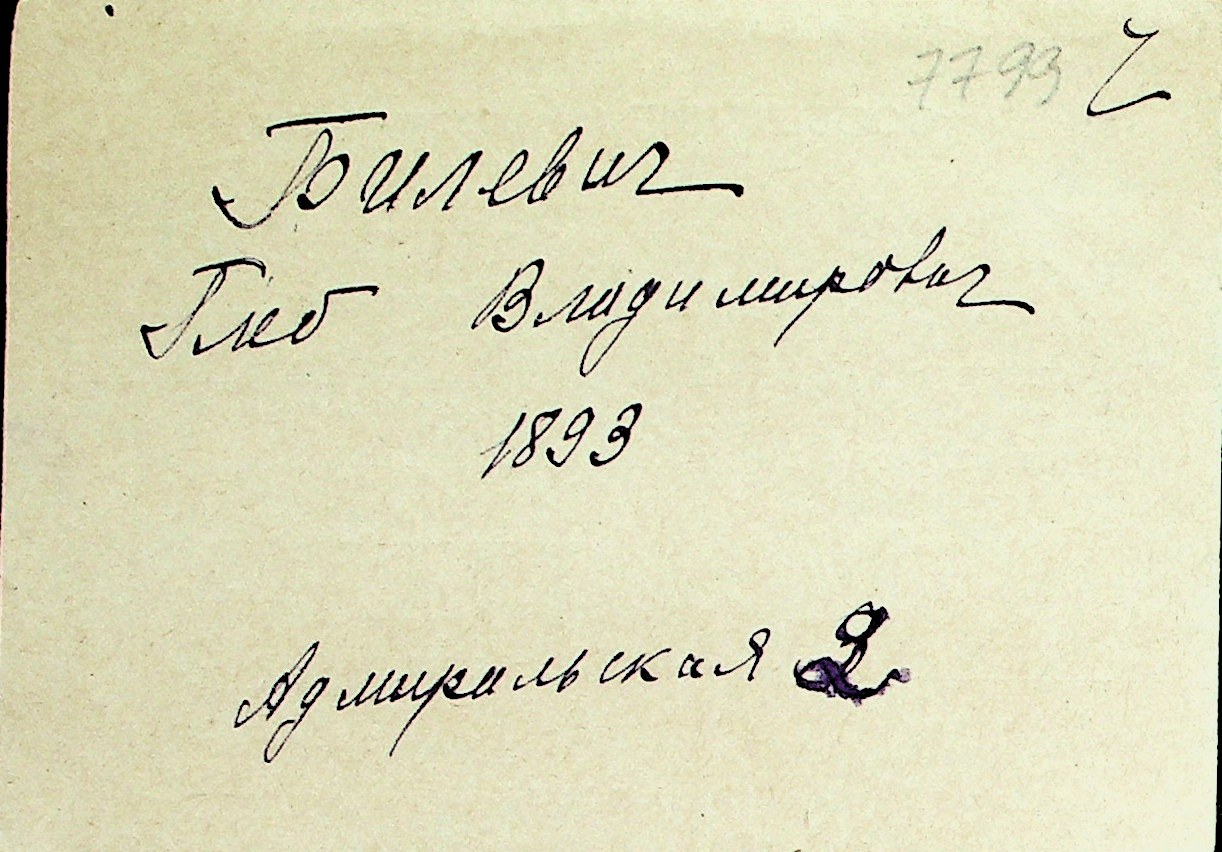 7793 ч
Билевич
Глеб Владимирович
1893
Адмиральская 2